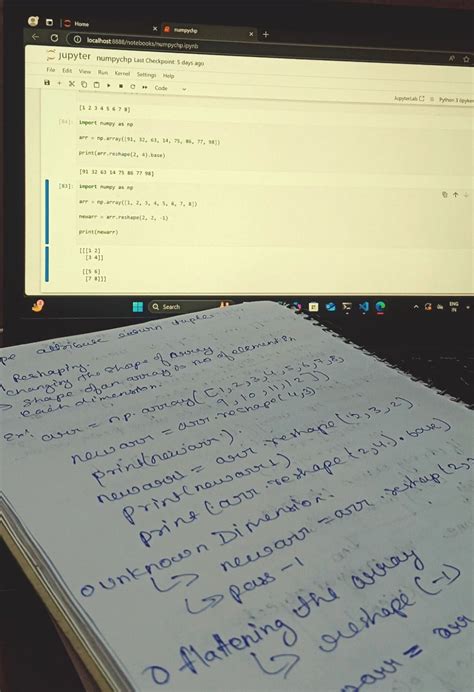 Home
numpychp
localhost:8888/notebooks/numpychp.ipynb
jupyter numpychp Last Checkpoint: 5 days ago
File Edit View Run Kernel Settings Help
Code
JupyterLab
Python 3
[1 2 3 4 5 6 7 8]
import numpy as np
arr = np.array([91, 32, 63, 14, 75, 86, 77, 98])
print(arr.reshape(2, 4).base)
[91 32 63 14 75 86 77 98]
[83]: import numpy as np
arr = np.array([1, 2, 3, 4, 5, 6, 7, 8])
newarr = arr.reshape(2, 2, -1)
print(newarr)
[[[1 2]
[3 4]]
[[5 6]
[7 8]]]
Search
ENG
IN
Reshaping
changing the shape of array
Shape of an array is no of element in
each dimension.
Ex: arr = np.array([1,2,3,4,5,6,7,8,
9,10,11,12])
newarr = arr.reshape(4,3)
print(newarr)
arr.reshape(
print(newarr1)
print(arr.reshape(2,4).base)
unknown Dimension:
newarr = arr.
pass -1
flatening the array
reshape(-1)
arr = arr